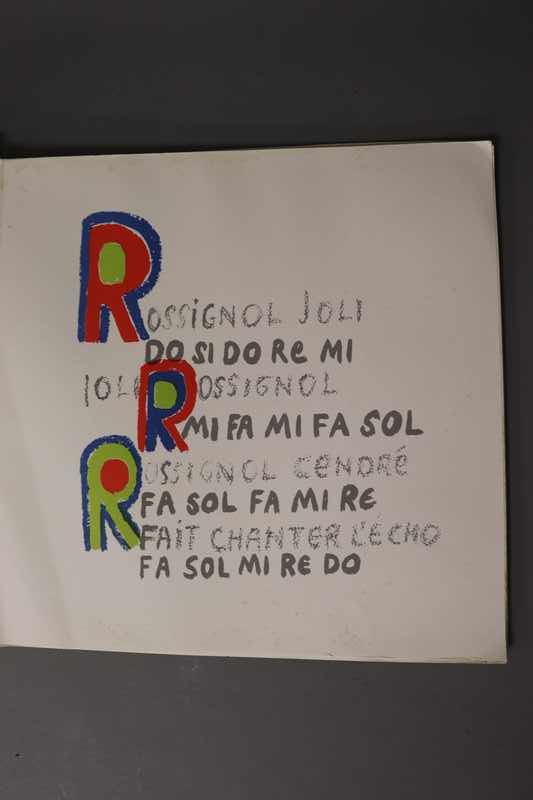 ROSSiGNOL JOLI
DO SI DO Re MI
JOLI ROSSIGNOL
MI FA MI FA SOL
ROSSIGNOL CeNDRé
FA SOL FA MI RE
FAiT CHANTER L'ÉCHO
FA SOL MI RE DO